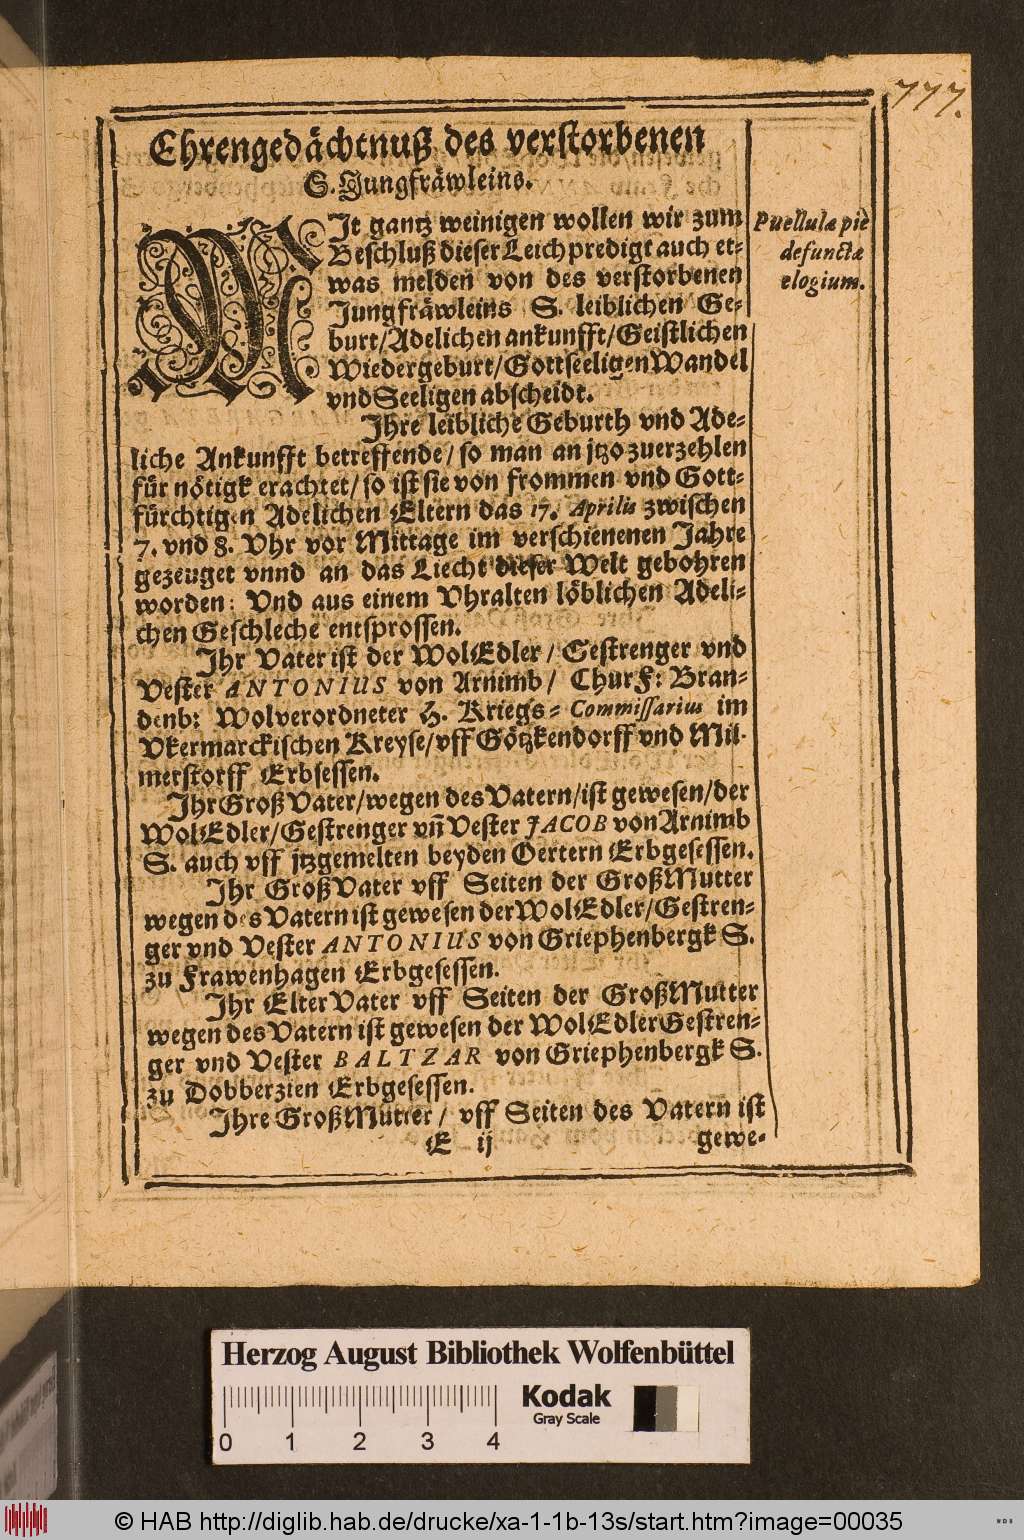 777.
Ehrengedächtnuß des verstorbenen
S. Jungfräwleins.
MJt gantz weinigen wollen wir zum
Beschluß dieser Leichpredigt auch et-
was melden von des verstorbenen
Jungfräwleins S. leiblichen Ge-
burt/Adelichen ankunfft/Geistlichen
Wiedergeburt/Gottseeligen Wandel
vnd Seeligen abscheidt.
Puellulæ piè
defunctæ
elogium.
Jhre leibliche Geburth vnd Ade-
liche Ankunfft betreffende/ so man an jtzo zuerzehlen
für nötigk erachtet/ so ist sie von frommen vnd Gott-
fürchtigen Adelichen Eltern das 17. Aprilis zwischen
7. vnd 8. Vhr vor Mittage im verschienenen Jahre
gezeuget vnnd an das Liecht dieser Welt gebohren
worden: Vnd aus einem Vhralten löblichen Adeli-
chen Geschleche entsprossen.
Jhr Vater ist der WolEdler/ Gestrenger vnd
Vester ANTONIUS von Arnimb/ Churf: Bran-
denb: Wolverordneter H. Kriegs- Commissarius im
Vkermarckischen Kreyse/vff Götzkendorff vnd Mil-
merstorff Erbsessen.
Jhr GroßVater/wegen des Vatern/ist gewesen/der
WolEdler/Gestrenger vn̄ Vester JACOB von Arnimb
S. auch vff jtzgemelten beyden Oertern Erbgesessen.
Jhr GroßVater vff Seiten der GroßMutter
wegen des Vatern ist gewesen der WolEdler/Gestren-
ger vnd Vester ANTONIUS von Griephenbergk S.
zu Frawenhagen Erbgesessen.
Jhr ElterVater vff Seiten der GroßMutter
wegen des Vatern ist gewesen der WolEdler Gestren-
ger vnd Vester BALTZAR von Griephenbergk S.
zu Dobberzien Erbgesessen.
Jhre GroßMutter/ vff Seiten des Vatern ist
E ij
gewe-
Herzog August Bibliothek Wolfenbüttel
0 1 2 3 4
Kodak
Gray Scale
© HAB http://diglib.hab.de/drucke/xa-1-1b-13s/start.htm?image=00035